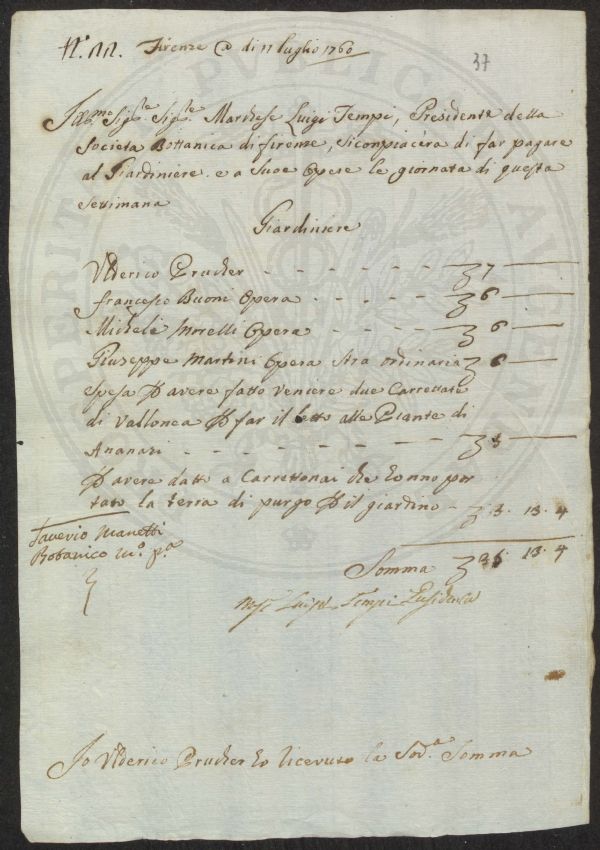 N.° 11. Firenze @ di 11 luglio 1760
37
Ill.mo Sig.re Sig.re Marchese Luigi Tempi, Presidente della
Societa Bottanica di firenze, si conpiacera di far pagare
al Giardiniere e a Suoe Opere le giornata di questa
Settimana
Giardiniere
Ulderico Prucher - - - - - - 7
francesco Buoni Opera - - - - - 6
Michele Morelli Opera - - - - - 6
Giuseppe Martini Opera stra ordinaria 6
spesa P avere fatto veniere due Carrettate
di Vallonea P far il letto alle Piante di
Ananasi - - - - - - -
P avere datto a Carrettonai che honno por
tato la terra di purgo P il giardino - 3. 13. 4
Saverio Manetti
Botanico m.o p.a
Somma 13. 4
Luigi Tempi Presidente
Io Ulderico Prucher ho ricevuto la Sod.a Somma